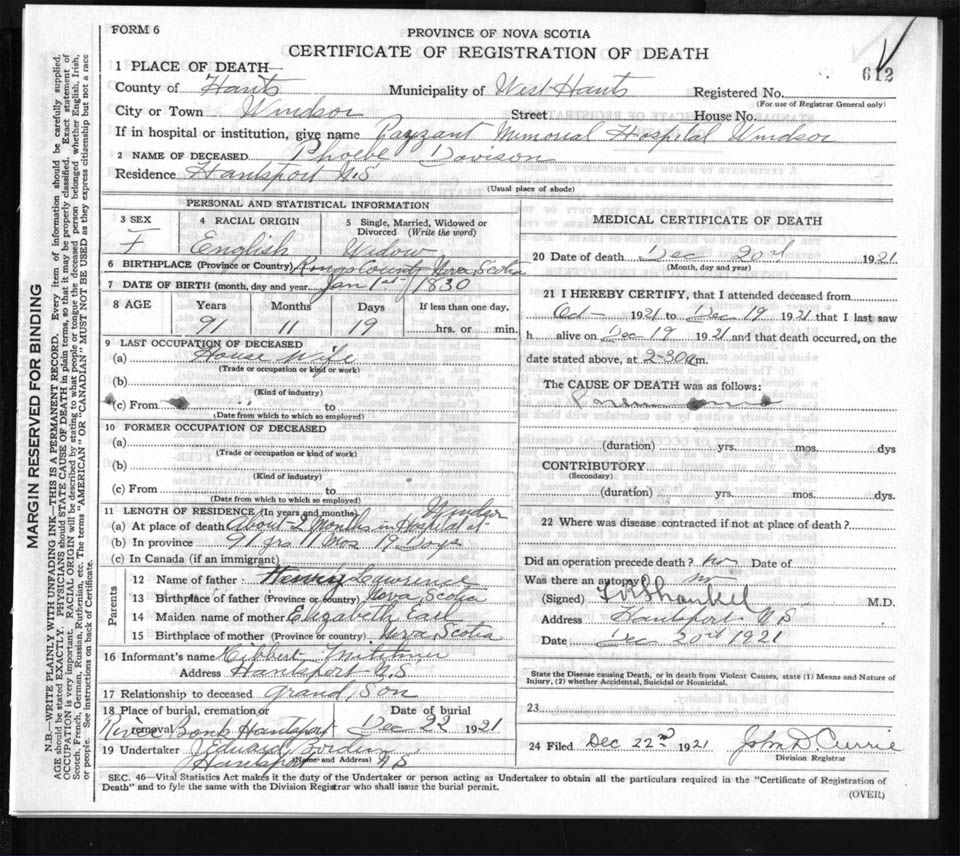 FORM 6
PROVINCE OF NOVA SCOTIA
CERTIFICATE OF REGISTRATION OF DEATH
612
1 PLACE OF DEATH—
County of Hants Municipality of West Hants Registered No.
(For use of Registrar General only)
City or Town Windsor Street House No.
If in hospital or institution, give name Payzant Memorial Hospital Windsor
2 NAME OF DECEASED Phoebe Davison
Residence Hantsport N.S
(Usual place of abode)
PERSONAL AND STATISTICAL INFORMATION
3 SEX 4 RACIAL ORIGIN 5 Single, Married, Widowed or Divorced (Write the word)
F English Widow
6 BIRTHPLACE (Province or Country) Kings County Nova Scotia
7 DATE OF BIRTH (month, day and year) Jan 1st 1830
8 AGE Years Months Days If less than one day,
91 11 19 hrs. or min.
9 LAST OCCUPATION OF DECEASED
(a) House wife
(Trade or occupation or kind or work)
(b)
(Kind of industry)
(c) From to
(Date from which to which so employed)
10 FORMER OCCUPATION OF DECEASED
(a)
(Trade or occupation or kind of work)
(b)
(Kind of industry)
(c) From to
(Date from which to which so employed)
11 LENGTH OF RESIDENCE (In years and months) Windsor
(a) At place of death About 2 Months in Hospital at
(b) In province 91 yrs 11 Mos 19 Days
(c) In Canada (if an immigrant)
Parents
12 Name of father Lawrence
13 Birthplace of father (Province or country) Nova Scotia
14 Maiden name of mother Elizabeth
15 Birthplace of mother (Province or country) Nova Scotia
16 Informant's name Hibbert
Address Hantsport N.S
17 Relationship to deceased Grand Son
18 Place of burial, cremation or removal Date of burial
River Bank Hantsport Dec 22 1921
19 Undertaker Edward
(Name and Address)
Hantsport N S
MEDICAL CERTIFICATE OF DEATH
20 Date of death Dec 20th 1921
(Month, day and year)
21 I HEREBY CERTIFY, that I attended deceased from
Oct 1921 to Dec 19 1921 that I last saw
h alive on Dec 19 1921 and that death occurred, on the
date stated above, at 2-30 a m.
The CAUSE OF DEATH was as follows:
(duration) yrs. mos. dys
CONTRIBUTORY
(Secondary)
(duration) yrs. mos. dys.
22 Where was disease contracted if not at place of death?
Did an operation precede death? no Date of
Was there an autopsy no
(Signed) Shankel M.D.
Address Hantsport N S
Date Dec 20th 1921
State the Disease causing Death, or in death from Violent Causes, state (1) Means and Nature of
Injury, (2) whether Accidental, Suicidal or Homicidal.
23
24 Filed Dec 22nd 1921 John D Currie
Division Registrar
SEC. 46—Vital Statistics Act makes it the duty of the Undertaker or person acting as Undertaker to obtain all the particulars required in the "Certificate of Registration of
Death" and to fyle the same with the Division Registrar who shall issue the burial permit.
(OVER)
MARGIN RESERVED FOR BINDING
N.B.—WRITE PLAINLY WITH UNFADING INK—THIS IS A PERMANENT RECORD. Every item of information should be carefully supplied.
AGE should be stated EXACTLY. PHYSICIANS should STATE CAUSE OF DEATH in plain terms, so that it may be properly classified. Exact statement of
OCCUPATION is very important. RACIAL ORIGIN will be described by stating to what people or tongue the deceased person belonged whether English, Irish,
Scotch, French, German, Russian, Ruthenian, etc. The terms "AMERICAN" OR "CANADIAN" MUST NOT BE USED as they express citizenship but not a race
or people. See instructions on back of Certificate.